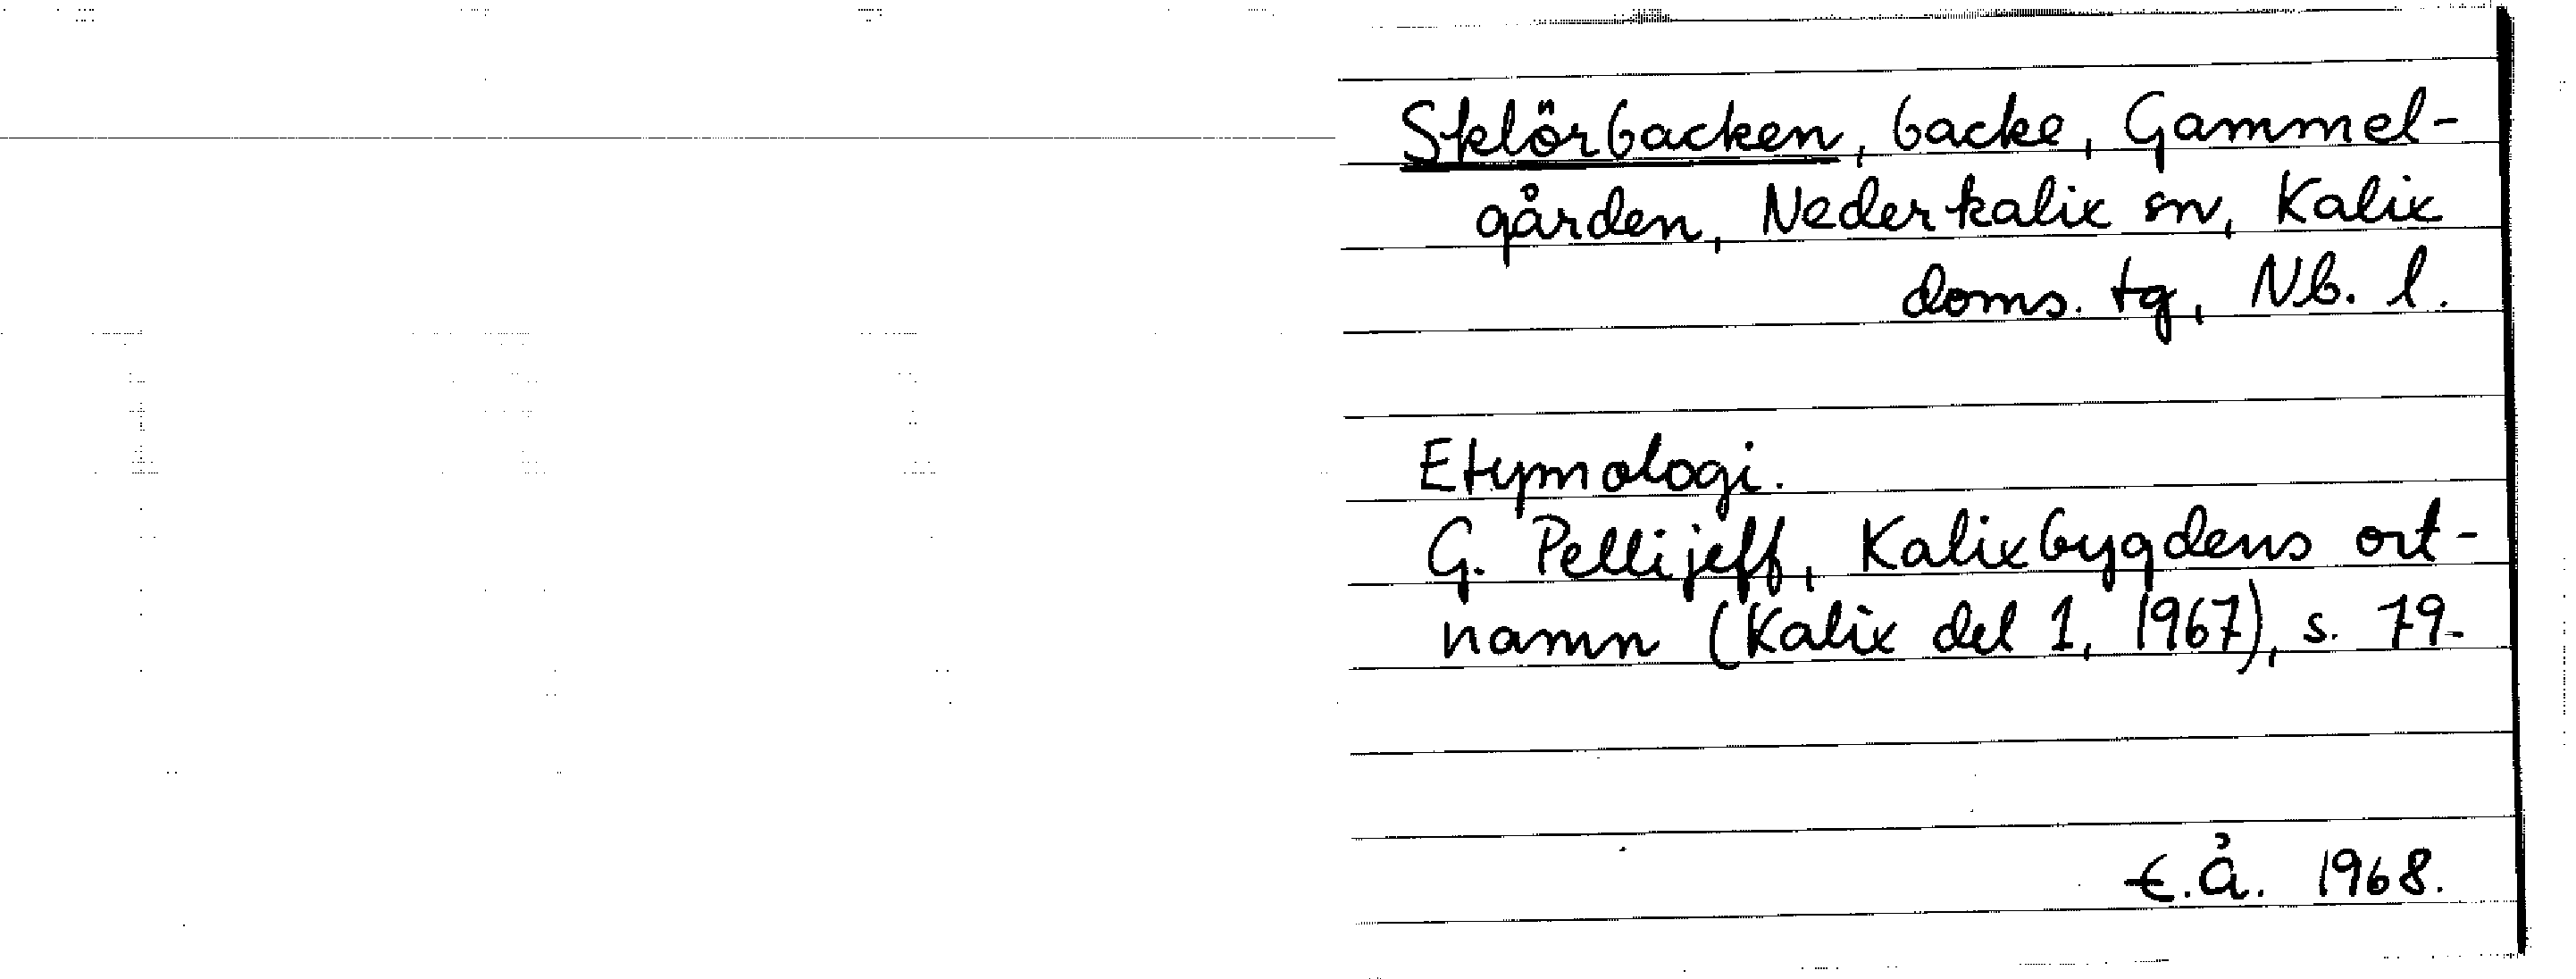 Sklörbacken, backe, Gammel-
gården, Nederkalix sn, Kalix
doms. tg, Nb. l.
Etymologi.
G. Pellijeff, Kalixbygdens ort-
namn (Kalix del 1, 1967), s. 79.
E.Å. 1968.